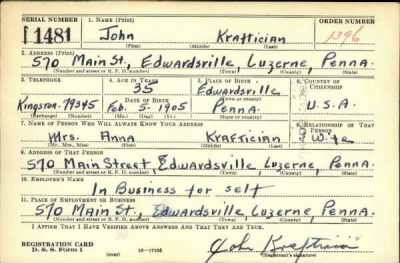 SERIAL NUMBER 1. NAME (Print) ORDER NUMBER
1481 John Kraftician 1396
(First) (Middle) (Last)
2. ADDRESS (Print)
570 Main St., Edwardsville, Luzerne, Penna.
(Number and street or R. F. D. number) (Town) (County) (State)
3. TELEPHONE 4. AGE IN YEARS 5. PLACE OF BIRTH 6. COUNTRY OF CITIZENSHIP
35 Edwardsville
DATE OF BIRTH (Town or county)
Kingston Feb. 5, 1905 Penna. U.S.A.
(Exchange) (Number) (Mo.) (Day) (Yr.) (State or country)
7. NAME OF PERSON WHO WILL ALWAYS KNOW YOUR ADDRESS 8. RELATIONSHIP OF THAT PERSON
Mrs. Anna Kraftician Wife
(Mr., Mrs., Miss) (First) (Middle) (Last)
9. ADDRESS OF THAT PERSON
570 Main Street, Edwardsville, Luzerne, Penna.
(Number and street or R. F. D. number) (Town) (County) (State)
10. EMPLOYER'S NAME
In Business for self
11. PLACE OF EMPLOYMENT OR BUSINESS
570 Main St., Edwardsville, Luzerne, Penna.
(Number and street or R. F. D. number) (Town) (County) (State)
I AFFIRM THAT I HAVE VERIFIED ABOVE ANSWERS AND THAT THEY ARE TRUE.
REGISTRATION CARD
D. S. S. FORM 1 John Kraftician
(over) (Registrant's signature)